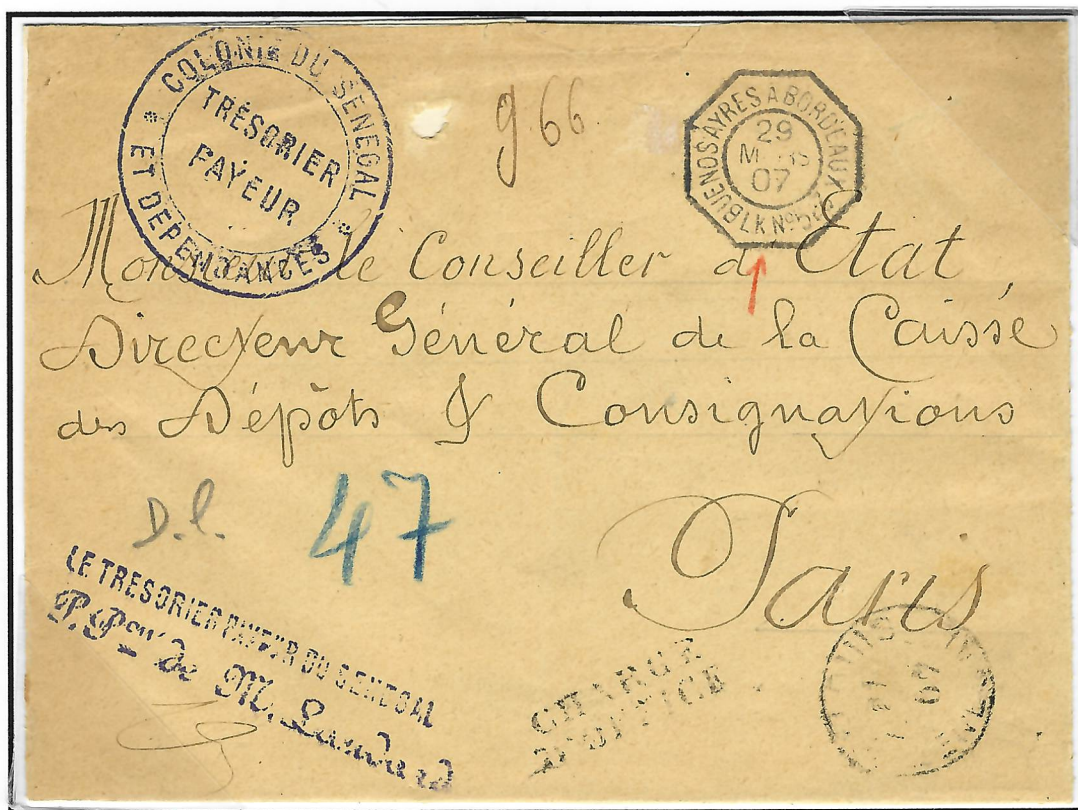 COLONIE DU SENEGAL
ET DEPENDANCES
TRÉSORIER
PAYEUR
966
BUENOS AYRES A BORDEAUX
29
MARS
07
LK Nº
Monsieur le Conseiller d'Etat,
Directeur Général de la Caisse
des Dépôts & Consignations
D.l.
47
Paris
LE TRESORIER PAYEUR DU SENEGAL
P. Pon de M.
CHARGÉ
D'OFFICE
07